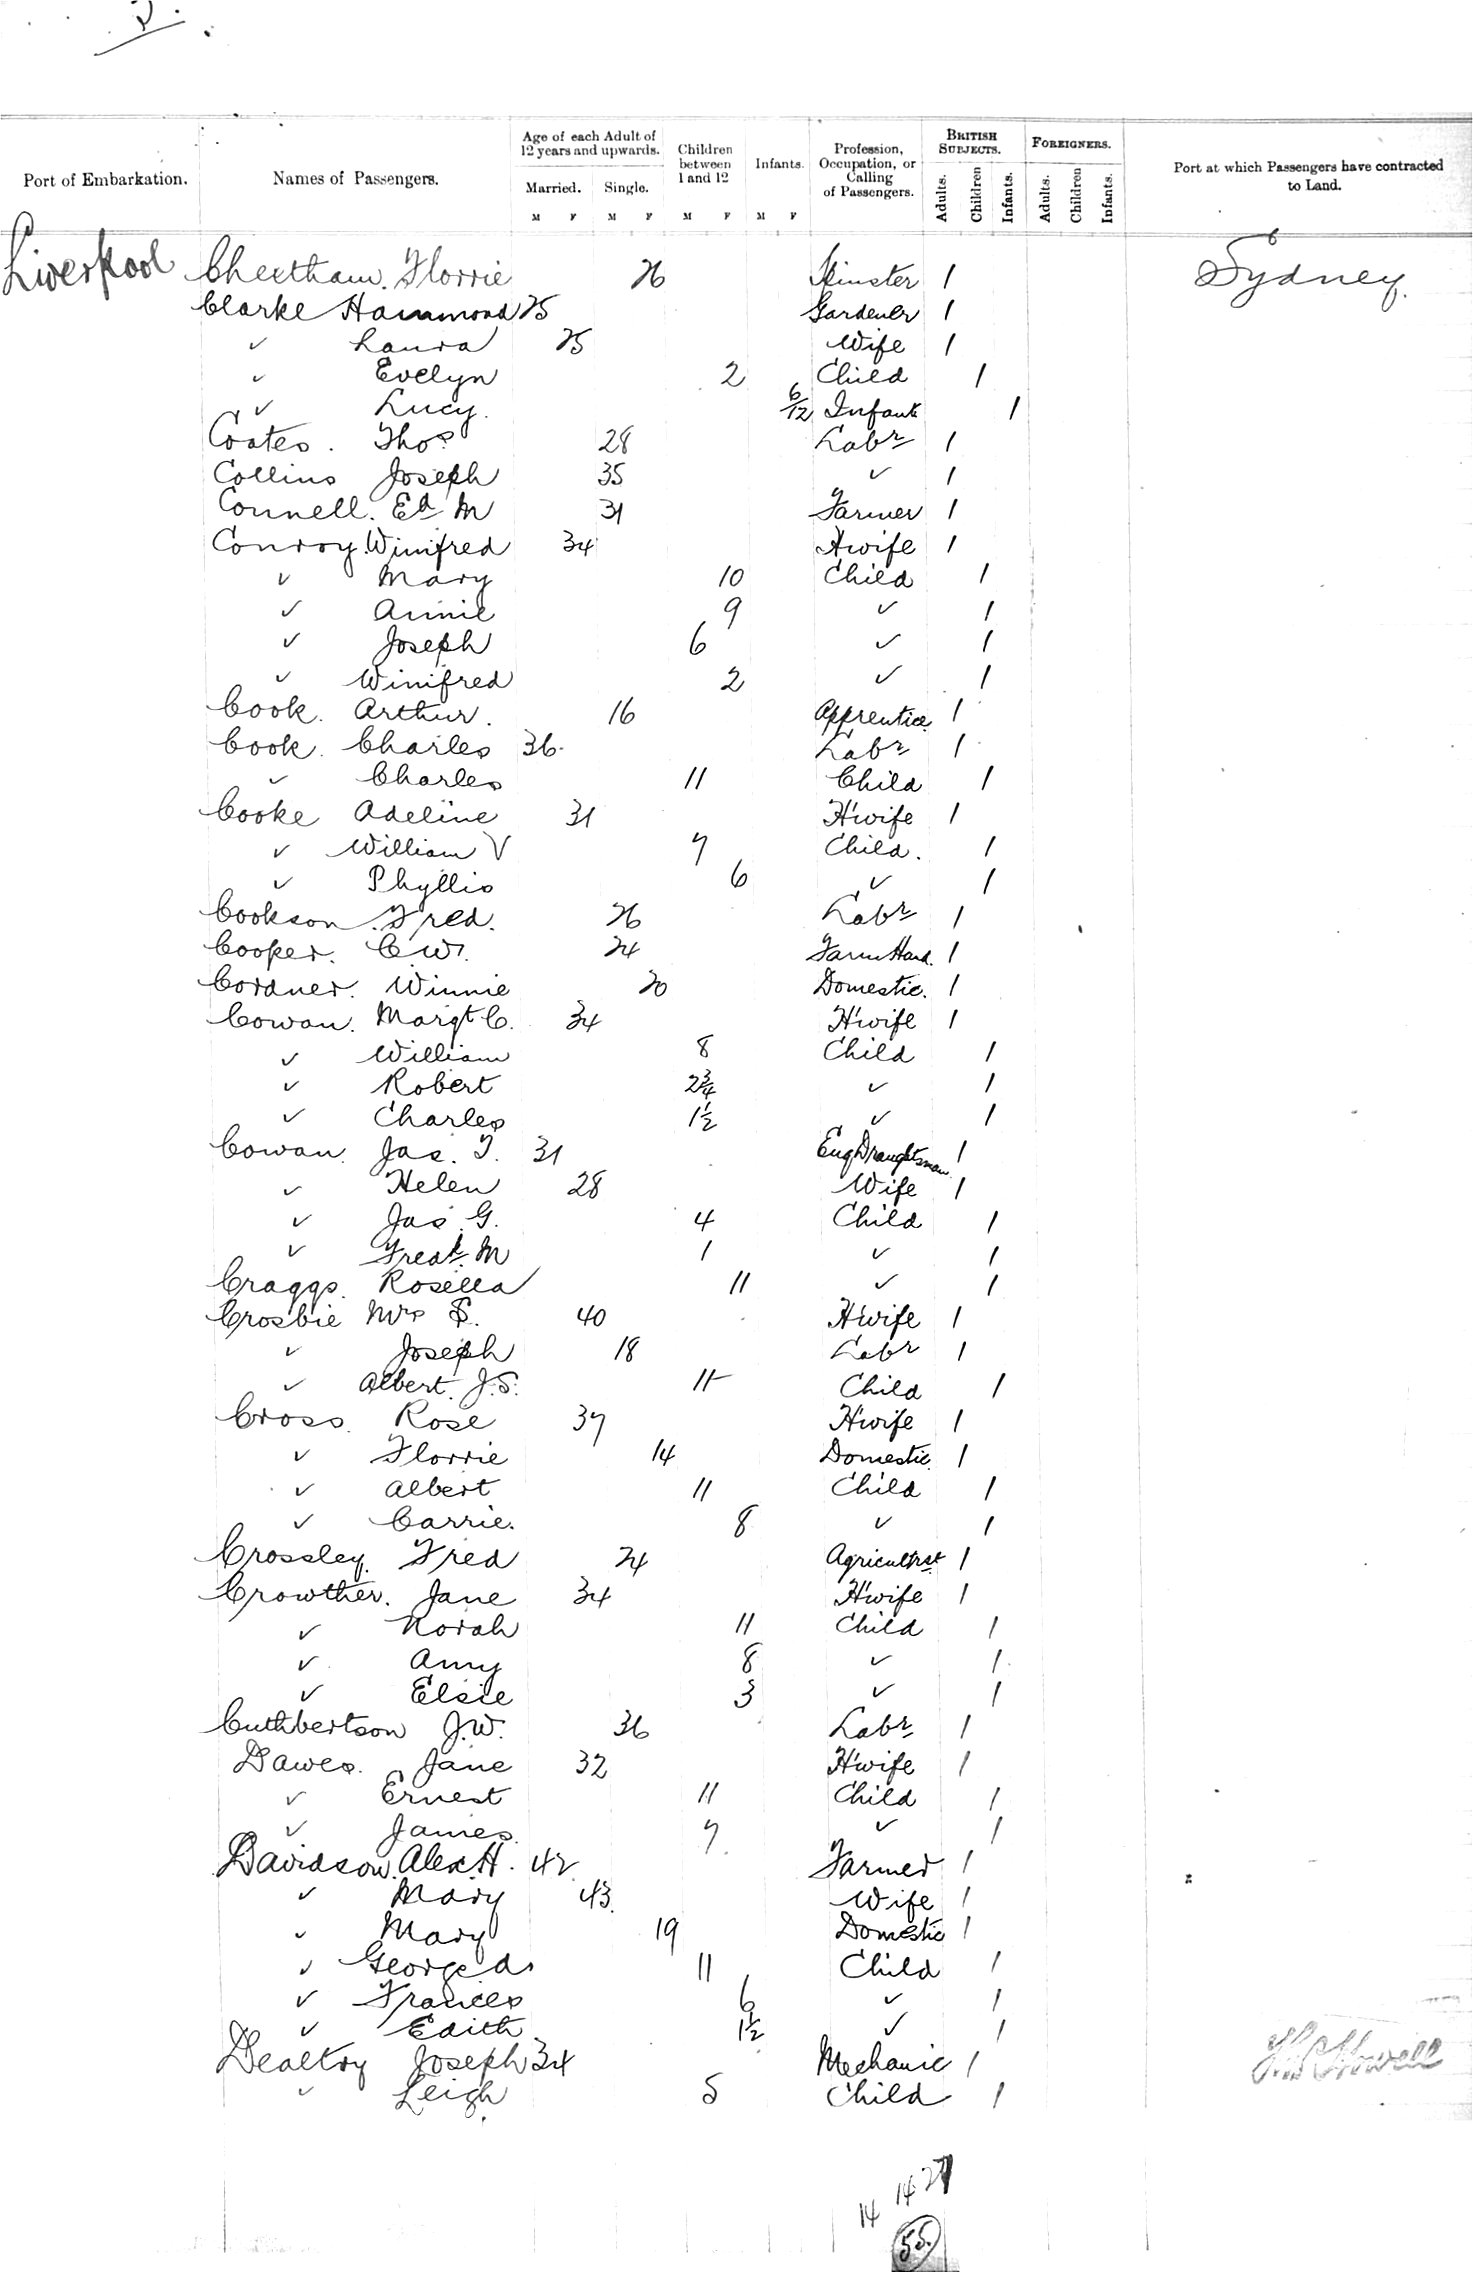 2.
Port of Embarkation. Names of Passengers. Age of each Adult of 12 years and upwards. Children between 1 and 12 Infants. Profession, Occupation, or Calling of Passengers. British Subjects. Foreigners. Port at which Passengers have contracted to Land.
Married. Single. Adults. Children Infants. Adults. Children Infants.
M F M F M F M F
Liverpool Cheetham. Florrie 26 Spinster 1 Sydney.
Clarke Hammond 25 Gardener 1
✓ Laura 25 Wife 1
✓ Evelyn 2 Child 1
✓ Lucy. 6/12 Infant 1
Coates. Thos 28 Labr 1
Collins Joseph 35 ✓ 1
Connell. Ed M 31 Farmer 1
Conroy. Winifred 34 Hwife 1
✓ Mary 10 Child 1
✓ Annie 9 ✓ 1
✓ Joseph 6 ✓ 1
✓ Winifred 2 ✓ 1
Cook. Arthur. 16 Apprentice 1
Cook. Charles 36 Labr 1
✓ Charles 11 Child 1
Cooke Adeline 31 H'wife 1
✓ William V 7 Child. 1
✓ Phyllis 6 ✓ 1
Cookson. Fred. 26 Labr 1
Cooper. C W. 24 Farm Hand. 1
Cordner. Winnie 20 Domestic. 1
Cowan. Margt C. 34 H'wife 1
✓ William 8 Child 1
✓ Robert 2¾ ✓ 1
✓ Charles 1½ ✓ 1
Cowan. Jas. T. 31 Eng Draughtsman 1
✓ Helen 28 Wife 1
✓ Jas G. 4 Child 1
✓ Fredk M 1 ✓ 1
Craggs. Rosella 11 ✓ 1
Crosbie Mrs S. 40 H'wife 1
✓ Joseph 18 Labr 1
✓ Albert. J.S. 11 Child 1
Cross. Rose 37 H'wife 1
✓ Florrie 14 Domestic. 1
✓ Albert 11 Child 1
✓ Carrie. 8 ✓ 1
Crossley. Fred 24 Agricultrst 1
Crowther. Jane 34 H'wife 1
✓ Norah 11 Child 1
✓ Amy 8 ✓ 1
✓ Elsie 3 ✓ 1
Cuthbertson J.W. 36 Labr 1
Dawes. Jane 32 H'wife 1
✓ Ernest 11 Child 1
✓ James. 7 ✓ 1
Davidson. Alex H. 42 Farmer 1
✓ Mary 43 Wife 1
✓ Mary 19 Domestic 1
✓ George A 11 Child 1
✓ Frances 6 ✓ 1
✓ Edith 1½ ✓ 1
Dealtry Joseph 34 Mechanic 1
✓ Leigh 5 Child 1
14 14 27
55